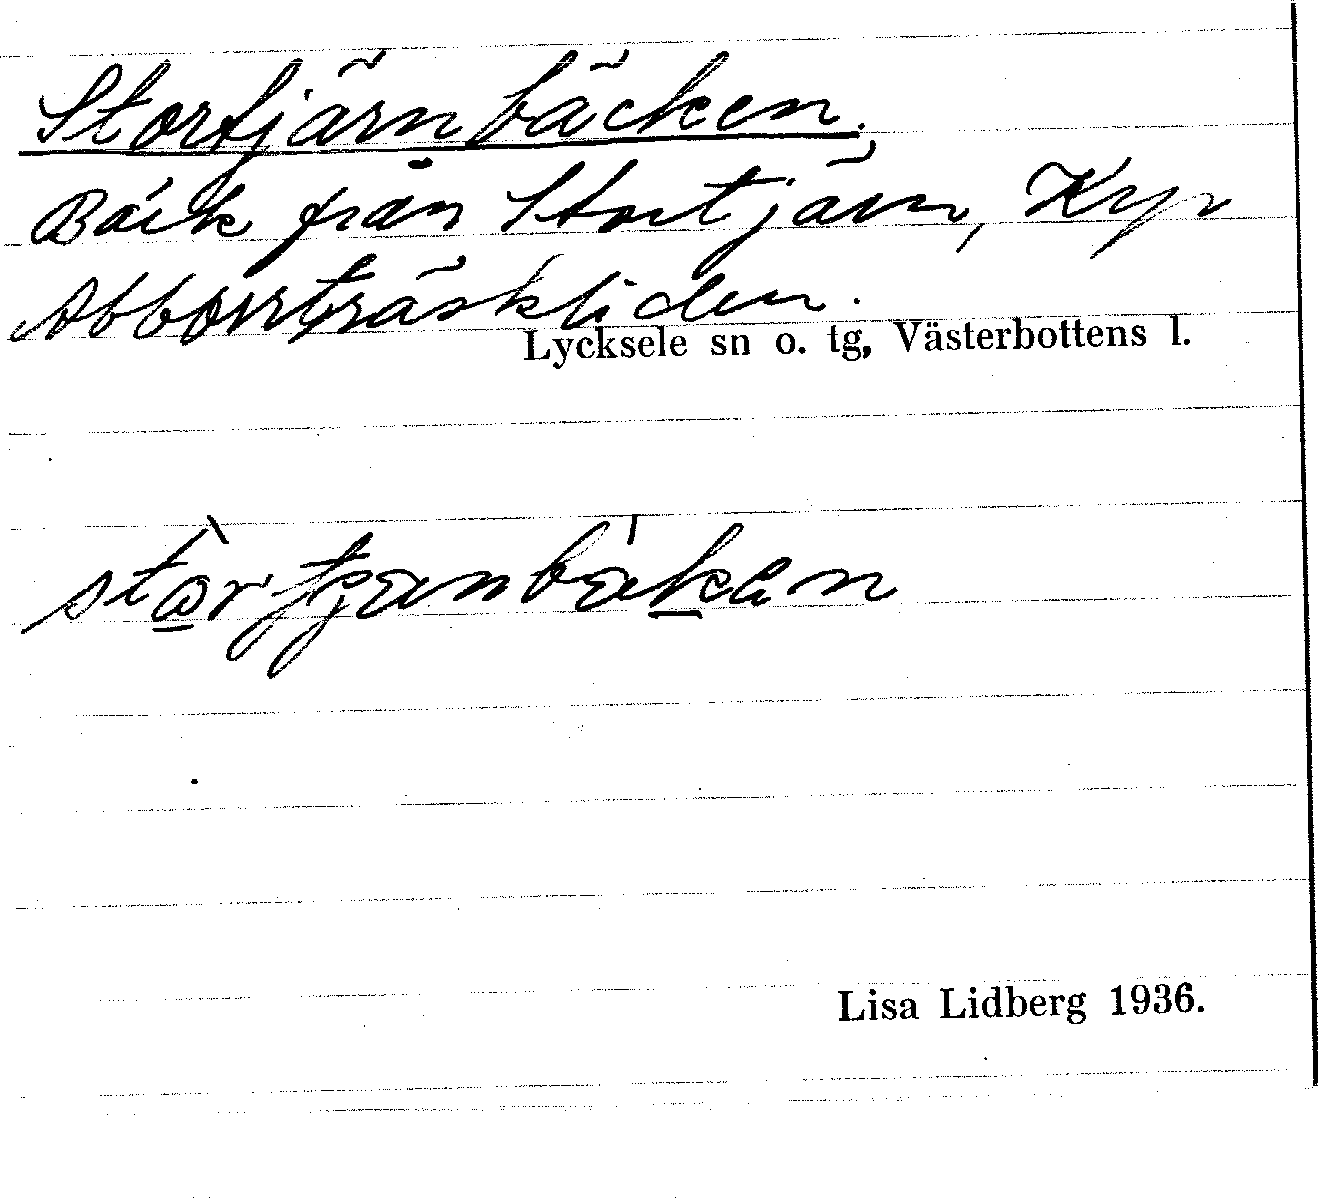 Stortjärnbäcken.
Bäck från Stortjärn, Kyr
Abborrträskliden.
Lycksele sn o. tg, Västerbottens l.
Lisa Lidberg 1936.